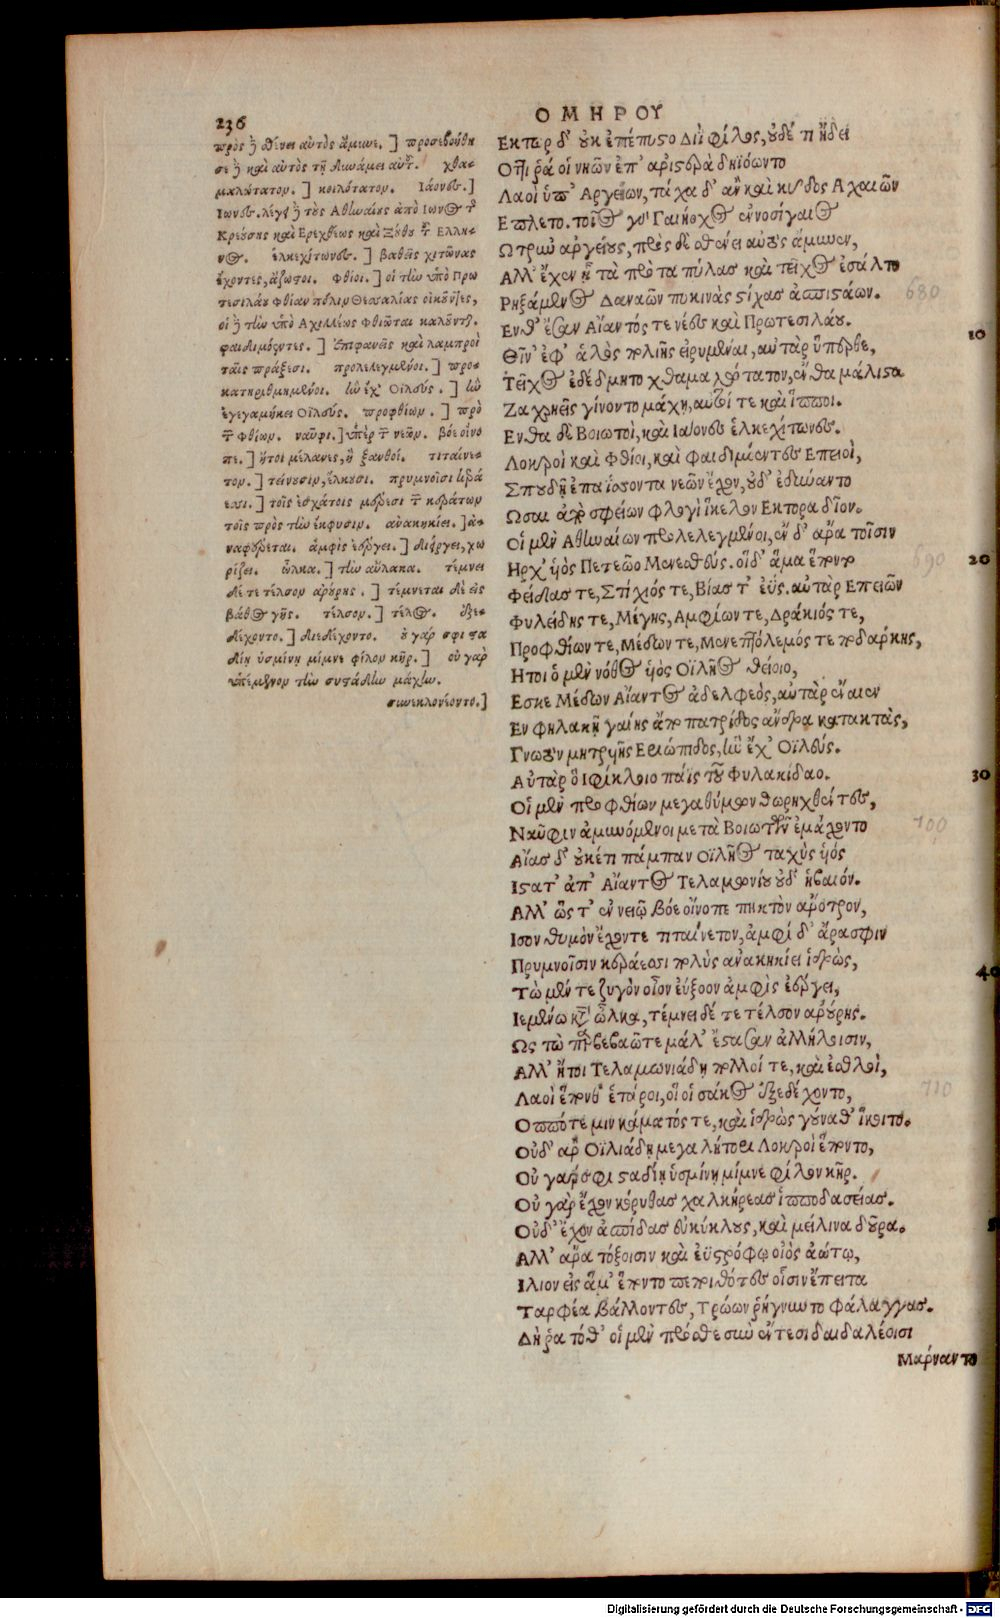 236
ΟΜΗΡΟΥ
πρὸς ἢ σθένει αὐτὸς ἄμυνε. ] προσεβούθη
σε ἢ καὶ αὐτὸς τῇ δυνάμει αὐτ. χθα-
μαλώτατον. ] κοιλότατον. Ιάονες. ]
Ιωνες. λέγει ἢ τοὺς Αθηναίους ἀπὸ Ιωνος τοῦ
Κρεούσης καὶ Ερεχθέως καὶ Ξούθου τοῦ Ελλη-
νος. ἑλκεχίτωνες. ] βαθεῖς χιτῶνας
ἔχοντες, ἄζωστοι. Φθίοι. ] οἱ τὴν ὑπὸ Πρω
τεσιλάῳ Φθίαν πόλιν Θεσσαλίας οἰκοῦντες,
οἱ ἢ τὴν ὑπὸ Αχιλλέως Φθιῶται καλοῦνται.
φαιδιμόεντες. ] ἐπιφανεῖς καὶ λαμπροὶ
ταῖς πράξεσι. προλελεγμένοι. ] προ-
κατηριθμημένοι. ἣν ἔχ' Οϊλεύς. ] ἣν
ἐγεγαμήκει Οϊλεύς. προφθίων. ] πρὸ
τῶν Φθίων. ναῦφι. ] ὑπὲρ τῶν νεῶν. βόε οἴνο
πε. ] ἤτοι μέλανες, ἢ ξανθοί. τιταίνε-
τον. ] τείνουσιν, ἕλκουσι. πρυμνοῖσι κερά
εσσι. ] τοῖς ἐσχάτοις μέρεσι τῶν κεράτων
τοῖς πρὸς τὴν ἔκφυσιν. ανακηκίει. ] ἀ-
ναφέρεται. ἀμφὶς ἐέργει. ] διείργει, χω
ρίζει. ὦλκα. ] τὴν αὔλακα. τέμνει
δέ τε τέλσον ἀρούρης. ] τέμνεται δὲ εἰς
βάθος γῆς. τέλσον. ] τέλος. ἐξε-
δέχοντο. ] διεδέχοντο. οὐ γάρ σφι στα
δίῃ ὑσμίνῃ μίμνε φίλον κῆρ. ] οὐ γαρ
ὑπέμενον τὴν συστάδην μάχην.
συνεκλονέοντο. ]
Εκτωρ δ' οὐκ ἐπέπυστο Διῒ φίλος, οὐδέ τι ᾔδει
Οττι ῥά οἱ νηῶν ἐπ' αριστερὰ δηϊόωντο
Λαοὶ ὑπ' Αργείων, τάχα δ' ἂν καὶ κῦδος Αχαιῶν
Επλετο. τοῖος γὰρ Γαιήοχος ἐννοσίγαιος
Ωτρυν' αργείους, πρὸς δὲ σθένει αὐτὸς ἄμυνεν,
Αλλ' ἔχεν ᾗ τὰ πρῶτα πύλας καὶ τεῖχος ἐσάλτο
Ρηξάμενος Δαναῶν πυκινὰς στίχας ἀσπιστάων.
Ενθ' ἔσαν Αἴαντός τε νέες καὶ Πρωτεσιλάου.
Θῖν' ἐφ' ἁλὸς πολιῆς εἰρυμέναι, αὐτὰρ ὕπερθε,
Τεῖχος ἐδέδμητο χθαμαλώτατον, ἔνθα μάλιστα
Ζαχρηεῖς γίνοντο μάχῃ, αὐτοί τε καὶ ἵπποι.
Ενθα δὲ Βοιωτοὶ, καὶ Ιάονες ἑλκεχίτωνες.
Λοκροὶ καὶ Φθίοι, καὶ Φαιδιμόεντες Επειοὶ,
Σπουδῇ ἐπαΐσσοντα νεῶν ἔχον, οὐδ' ἐδύναντο
Ωσαι ἀπὸ σφείων φλογὶ ἴκελον Εκτορα δῖον.
Οἱ μὲν Αθηναίων προλελεγμένοι, ἐν δ' αρα τοῖσιν
Ηρχ' υἱὸς Πετεῶο Μενεσθεύς. οἱ δ' ἅμα ἕποντο
Φείδας τε, Στιχίος τε, Βίας τ' ἐΰς. αὐτὰρ Επειῶν
Φυλείδης τε, Μέγης, Αμφίων τε, Δράκιός τε,
Προφθίων τε, Μέδων τε, Μενεπτόλεμός τε ποδάρκης,
Ητοι ὁ μὲν νόθος υἱὸς Οϊλῆος θείοιο,
Εσκε Μέδων Αἴαντος ἀδελφεὸς, αὐτὰρ ἔναιεν
Εν Φηλακῇ γαίης ἄπο πατρίδος ἄνδρα κατακτὰς,
Γνωτὸν μητρυιῆς Εριώπιδος, ἣν ἔχ' Οϊλεύς.
Αὐτὰρ ὃ Ιφίκλοιο πάϊς τοῦ Φυλακίδαο.
Οἱ μὲν πρὸ Φθίων μεγαθύμων θωρηχθέντες,
Ναῦφιν ἀμυνόμενοι μετὰ Βοιωτῶν ἐμάχοντο
Αἴας δ' οὐκέτι πάμπαν Οϊλῆος ταχὺς υἱός
Ιστατ' ἀπ' Αἴαντος Τελαμωνίου οὐδ' ἠβαιόν.
Αλλ' ὥς τ' ἐν νειῷ βόε οἴνοπε πηκτὸν αροτρον,
Ισον θυμὸν ἔχοντε τιταίνετον, ἀμφὶ δ' ἄρα σφιν
Πρυμνοῖσιν κεράεσσι πολὺς ανακηκίει ἱδρὼς,
Τὼ μέν τε ζυγὸν οἶον ἐύξοον ἀμφὶς ἐέργει,
Ιεμένω κατὰ ὦλκα, τέμνει δέ τε τέλσον αρούρης.
Ως τὼ παρβεβαῶτε μάλ' ἔστασαν ἀλλήλοισιν,
Αλλ' ἤτοι Τελαμωνιάδῃ πολλοί τε, καὶ ἐσθλοὶ,
Λαοὶ ἕπονθ' ἑτάροι, οἵ οἱ σάκος ἐξεδέχοντο,
Οππότε μιν κάματός τε, καὶ ἱδρὼς γούναθ' ἵκοιτο.
Οὐδ' αρ' Οϊλιάδῃ μεγαλήτορι Λοκροὶ ἕποντο,
Οὐ γαρ σφι σταδίῃ ὑσμίνῃ μίμνε φίλον κῆρ.
Οὐ γὰρ ἔχον κόρυθας χαλκήρεας ἱπποδασείας.
Οὐδ' ἔχον ἀσπίδας εὐκύκλους, καὶ μείλινα δοῦρα.
Αλλ' αρα τόξοισιν καὶ ἐϋστρόφῳ οἰὸς ἀώτῳ,
Ιλιον εἰς ἅμ' ἕποντο πεποιθότες οἷσιν ἔπειτα
Ταρφέα βάλλοντες, Τρώων ῥήγνυντο φάλαγγας.
Δή ῥα τόθ' οἱ μὲν πρόσθε σὺν ἔντεσι δαιδαλέοισι
Μαρναντο
10
20
30
40
680
690
700
710
Digitalisierung gefördert durch die Deutsche Forschungsgemeinschaft - DFG